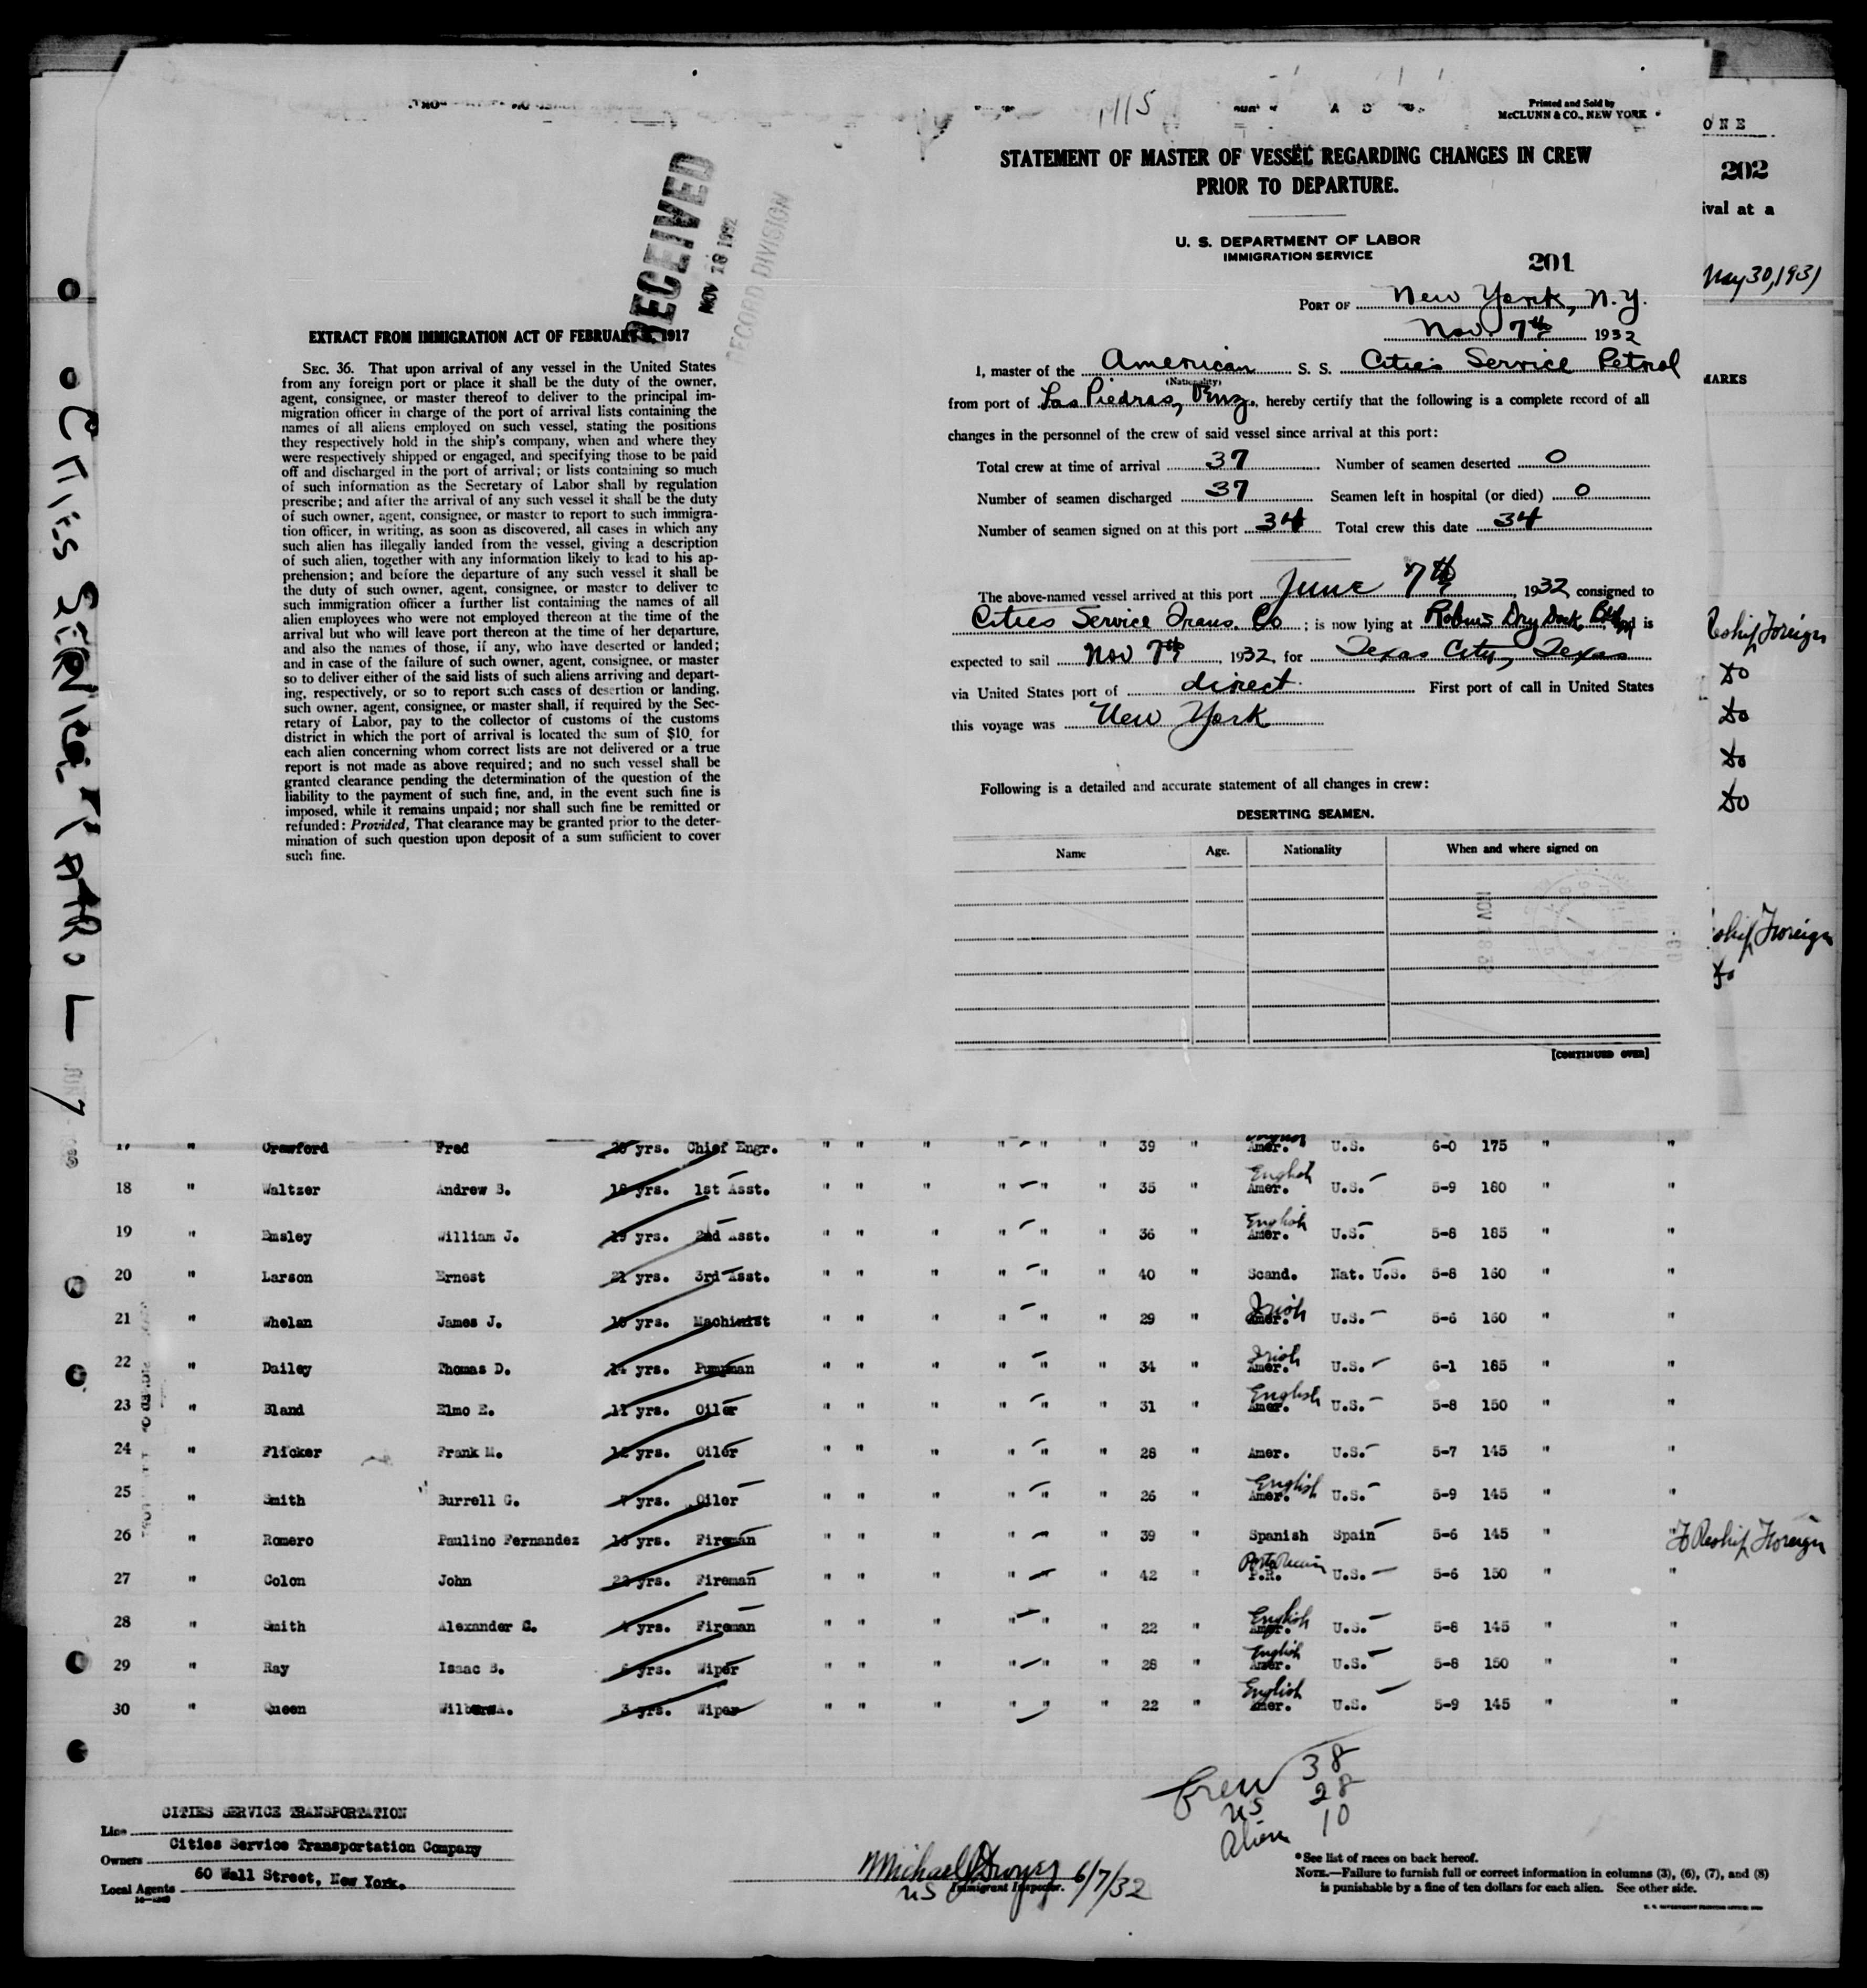 1115
Printed and Sold by
McCLUNN & CO., NEW YORK
STATEMENT OF MASTER OF VESSEL REGARDING CHANGES IN CREW
PRIOR TO DEPARTURE.
U. S. DEPARTMENT OF LABOR
IMMIGRATION SERVICE
201
PORT OF New York, N.Y.
Nov. 7th 1932
I, master of the American S. S. Cities Service Petrol
(Nationality)
from port of Las Piedras, Venz., hereby certify that the following is a complete record of all
changes in the personnel of the crew of said vessel since arrival at this port:
Total crew at time of arrival 37 Number of seamen deserted 0
Number of seamen discharged 37 Seamen left in hospital (or died) 0
Number of seamen signed on at this port 34 Total crew this date 34
The above-named vessel arrived at this port June 7th, 1932, consigned to
Cities Service Trans. Co; is now lying at Robins Dry Dock, and is
expected to sail Nov 7th, 1932, for Texas City, Texas
via United States port of direct First port of call in United States
this voyage was New York
Following is a detailed and accurate statement of all changes in crew:
DESERTING SEAMEN.
Name Age. Nationality When and where signed on
[CONTINUED OVER]
RECEIVED
NOV 18 1932
RECORD DIVISION
EXTRACT FROM IMMIGRATION ACT OF FEBRUARY 5, 1917
SEC. 36. That upon arrival of any vessel in the United States
from any foreign port or place it shall be the duty of the owner,
agent, consignee, or master thereof to deliver to the principal im-
migration officer in charge of the port of arrival lists containing the
names of all aliens employed on such vessel, stating the positions
they respectively hold in the ship's company, when and where they
were respectively shipped or engaged, and specifying those to be paid
off and discharged in the port of arrival; or lists containing so much
of such information as the Secretary of Labor shall by regulation
prescribe; and after the arrival of any such vessel it shall be the duty
of such owner, agent, consignee, or master to report to such immigra-
tion officer, in writing, as soon as discovered, all cases in which any
such alien has illegally landed from the vessel, giving a description
of such alien, together with any information likely to lead to his ap-
prehension; and before the departure of any such vessel it shall be
the duty of such owner, agent, consignee, or master to deliver to
such immigration officer a further list containing the names of all
alien employees who were not employed thereon at the time of the
arrival but who will leave port thereon at the time of her departure,
and also the names of those, if any, who have deserted or landed;
and in case of the failure of such owner, agent, consignee, or master
so to deliver either of the said lists of such aliens arriving and depart-
ing, respectively, or so to report such cases of desertion or landing,
such owner, agent, consignee, or master shall, if required by the Sec-
retary of Labor, pay to the collector of customs of the customs
district in which the port of arrival is located the sum of $10 for
each alien concerning whom correct lists are not delivered or a true
report is not made as above required; and no such vessel shall be
granted clearance pending the determination of the question of the
liability to the payment of such fine, and, in the event such fine is
imposed, while it remains unpaid; nor shall such fine be remitted or
refunded: Provided, That clearance may be granted prior to the deter-
mination of such question upon deposit of a sum sufficient to cover
such fine.
CITIES SERVICE PETROL
ONE
202
ival at a
May 30, 1931
MARKS
Reship Foreign
Do
Do
Do
Do
ship Foreign
Do
17 " Crawford Fred 20 yrs. Chief Engr. " " " " " " 39 " Amer. U.S. 6-0 175 " "
18 " Waltzer Andrew B. 18 yrs. 1st Asst. " " " " " " 35 " English Amer. U.S. 5-9 180 " "
19 " Emsley William J. 19 yrs. 2nd Asst. " " " " " " 36 " English Amer. U.S. 5-8 185 " "
20 " Larson Ernest 21 yrs. 3rd Asst. " " " " " " 40 " Scand. Nat. U.S. 5-8 160 " "
21 " Whelan James J. 10 yrs. Machinist " " " " " " 29 " Irish Amer. U.S. 5-6 160 " "
22 " Dailey Thomas D. 14 yrs. Pumpman " " " " " " 34 " Irish Amer. U.S. 6-1 185 " "
23 " Bland Elmo E. 11 yrs. Oiler " " " " " " 31 " English Amer. U.S. 5-8 150 " "
24 " Flicker Frank M. 12 yrs. Oiler " " " " " " 28 " Amer. U.S. 5-7 145 " "
25 " Smith Burrell C. 7 yrs. Oiler " " " " " " 26 " English Amer. U.S. 5-9 145 " "
26 " Romero Paulino Fernandez 16 yrs. Fireman " " " " " " 39 " Spanish Spain 5-6 145 " " To Reship Foreign
27 " Colon John 22 yrs. Fireman " " " " " " 42 " Porto Rican P.R. U.S. 5-6 150 " "
28 " Smith Alexander G. 4 yrs. Fireman " " " " " " 22 " English Amer. U.S. 5-8 145 " "
29 " Ray Isaac B. 6 yrs. Wiper " " " " " " 28 " English Amer. U.S. 5-8 150 " "
30 " Queen Wilber A. 3 yrs. Wiper " " " " " " 22 " English Amer. U.S. 5-9 145 " "
Crew 38
US 28
Alien 10
Line CITIES SERVICE TRANSPORTATION
Owners Cities Service Transportation Company
Local Agents 60 Wall Street, New York.
Michael J Dwyer 6/7/32
US Immigrant Inspector.
*See list of races on back hereof.
NOTE.—Failure to furnish full or correct information in columns (3), (6), (7), and (8)
is punishable by a fine of ten dollars for each alien. See other side.